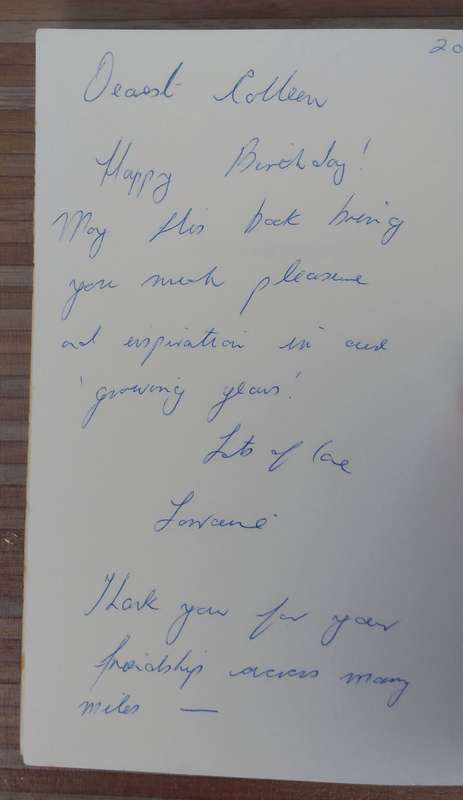 20
Dearest Colleen
Happy Birthday!
May this book bring
you much pleasure
and inspiration in our
'growing years'.
Lots of love
Lorraine
Thank you for your
friendship across many
miles —